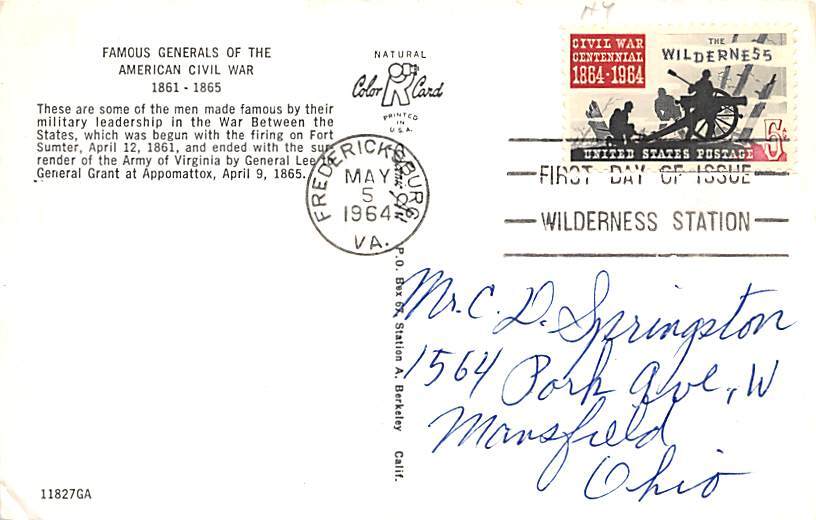 FAMOUS GENERALS OF THE
AMERICAN CIVIL WAR
1861 - 1865
These are some of the men made famous by their
military leadership in the War Between the
States, which was begun with the firing on Fort
Sumter, April 12, 1861, and ended with the sur-
render of the Army of Virginia by General Lee to
General Grant at Appomattox, April 9, 1865.
NATURAL
Color Card
PRINTED
IN
U.S.A.
CIVIL WAR
CENTENNIAL
1864-1964
THE
WILDERNESS
5¢
UNITED STATES POSTAGE
FREDERICKSBURG
MAY
5
1964
VA.
FIRST DAY OF ISSUE
WILDERNESS STATION
P.O. Box 67, Station A. Berkeley Calif.
Mr. C. D. Springston
1564 Park Ave., W
Mansfield
Ohio
11827GA